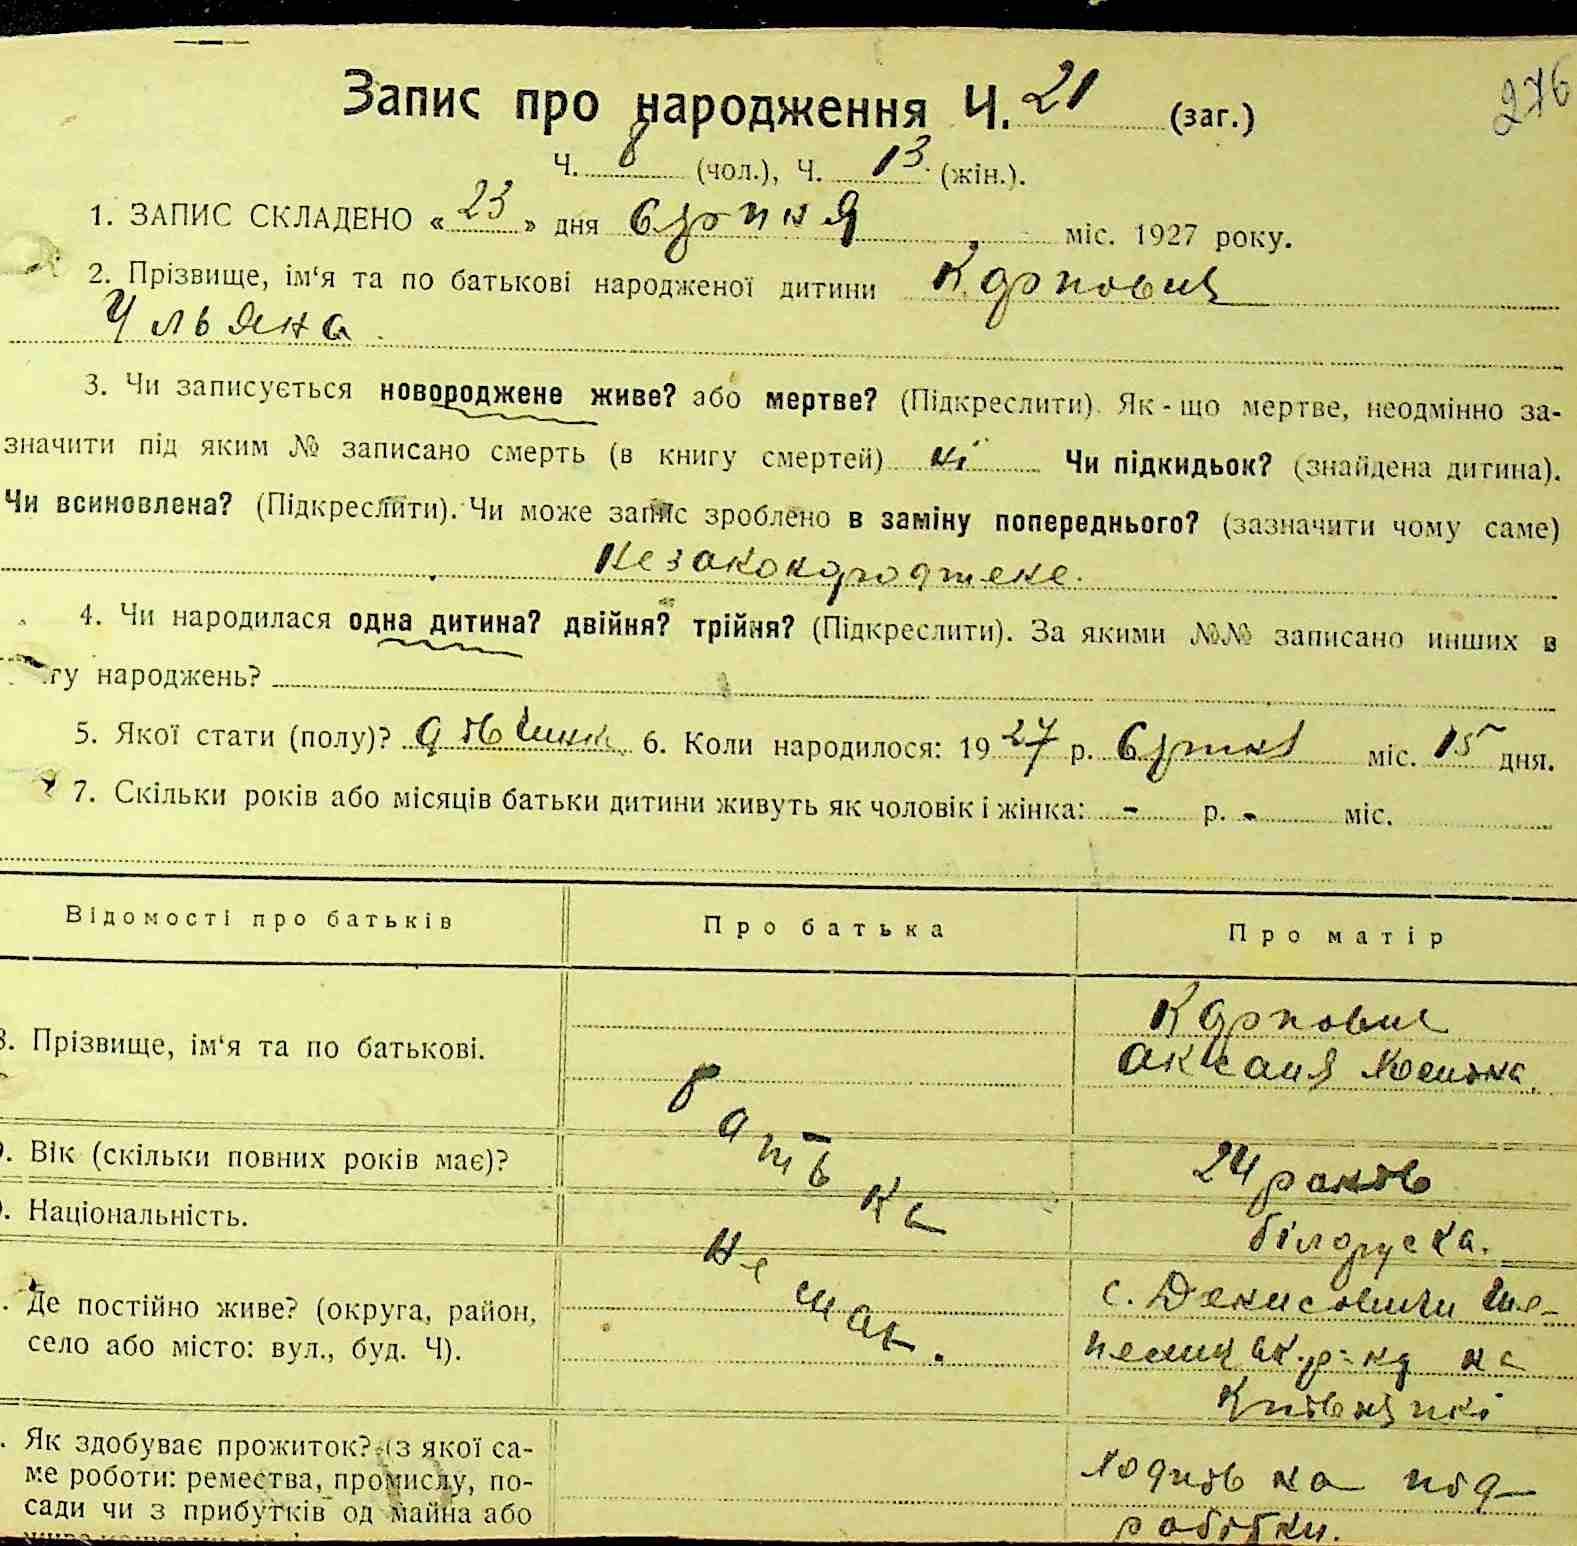 276
Запис про народження Ч. 21 (заг.)
Ч. 8 (чол.), Ч. 13 (жін.).
1. ЗАПИС СКЛАДЕНО « 23 » дня Серпня міс. 1927 року.
2. Прізвище, ім‘я та по батькові народженої дитини Карпович
Ульяна.
3. Чи записується новороджене живе? або мертве? (Підкреслити). Як-що мертве, неодмінно за-
значити під яким № записано смерть (в книгу смертей) ні Чи підкидьок? (знайдена дитина).
Чи всиновлена? (Підкреслити). Чи може запис зроблено в заміну попереднього? (зазначити чому саме)
Незаконороджене.
4. Чи народилася одна дитина? двійня? трійня? (Підкреслити). За якими №№ записано инших в
гу народжень?
5. Якої стати (полу)? 6. Коли народилося: 1927 р. Серпня міс. 15 дня.
7. Скільки років або місяців батьки дитини живуть як чоловік і жінка: - р. - міс.
Відомості про батьків Про батька Про матір
8. Прізвище, ім‘я та по батькові. Карпович
9. Вік (скільки повних років має)? Батька 24 років
Національність. білоруска.
Де постійно живе? (округа, район, не має. с. Денисовичи
село або місто: вул., буд. Ч). р-ну на
Київщині
Як здобуває прожиток? (з якої са- ходить на под-
ме роботи: ремества, промислу, по- работки.
сади чи з прибутків од майна або